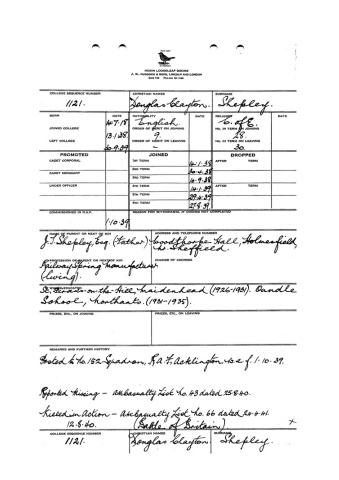 ROBIN LOOSELEAF BOOKS
J. W. RUDDOCK & SONS, LINCOLN AND LONDON
COLLEGE SEQUENCE NUMBER CHRISTIAN NAMES SURNAME
1121. Douglas Clayton, Shepley.
BORN DATE NATIONALITY RELIGION DATE
14.7.18 English. C. of E.
JOINED COLLEGE ORDER OF MERIT ON JOINING NO. IN TERM ON JOINING
13.1.38. 9 28.
LEFT COLLEGE ORDER OF MERIT ON LEAVING NO. IN TERM ON LEAVING
30.9.39 - 30.
PROMOTED JOINED DROPPED
CADET CORPORAL 1ST TERM 14.1.38 AFTER TERM
2ND TERM 30.4.38
CADET SERGEANT 3RD TERM 14.9.38 AFTER TERM
UNDER OFFICER 4TH TERM 14.1.39 AFTER TERM
5TH TERM 29.4.39
6TH TERM 27.8.39
COMMISSIONED IN R.A.F. REASON FOR WITHDRAWAL IF COURSE NOT COMPLETED
1.10.39
NAME OF PARENT OR NEXT OF KIN ADDRESS AND TELEPHONE NUMBER
J.T. Shepley, Esq. (Father) Woodthorpe Hall, Holmesfield,
Nr. Sheffield.
PROFESSION OF PARENT OR NEXT OF KIN CHANGE OF ADDRESS
Railway Spring Manufacturer
(living).
on-the-Hill, Maidenhead (1926-1931). Oundle
School, Northants. (1931-1935).
PRIZES, ETC., ON JOINING PRIZES, ETC., ON LEAVING
REMARKS AND FURTHER HISTORY
Posted to No. 152 Squadron, R.A.F. Acklington w.e.f 1.10.39.
Reported Missing - Casualty List No. 43 dated 25.8.40.
Killed in Action - Casualty List No. 66 dated
12.8.40. (Battle of Britain)
COLLEGE SEQUENCE NUMBER CHRISTIAN NAMES SURNAME
1121. Douglas Clayton, Shepley.